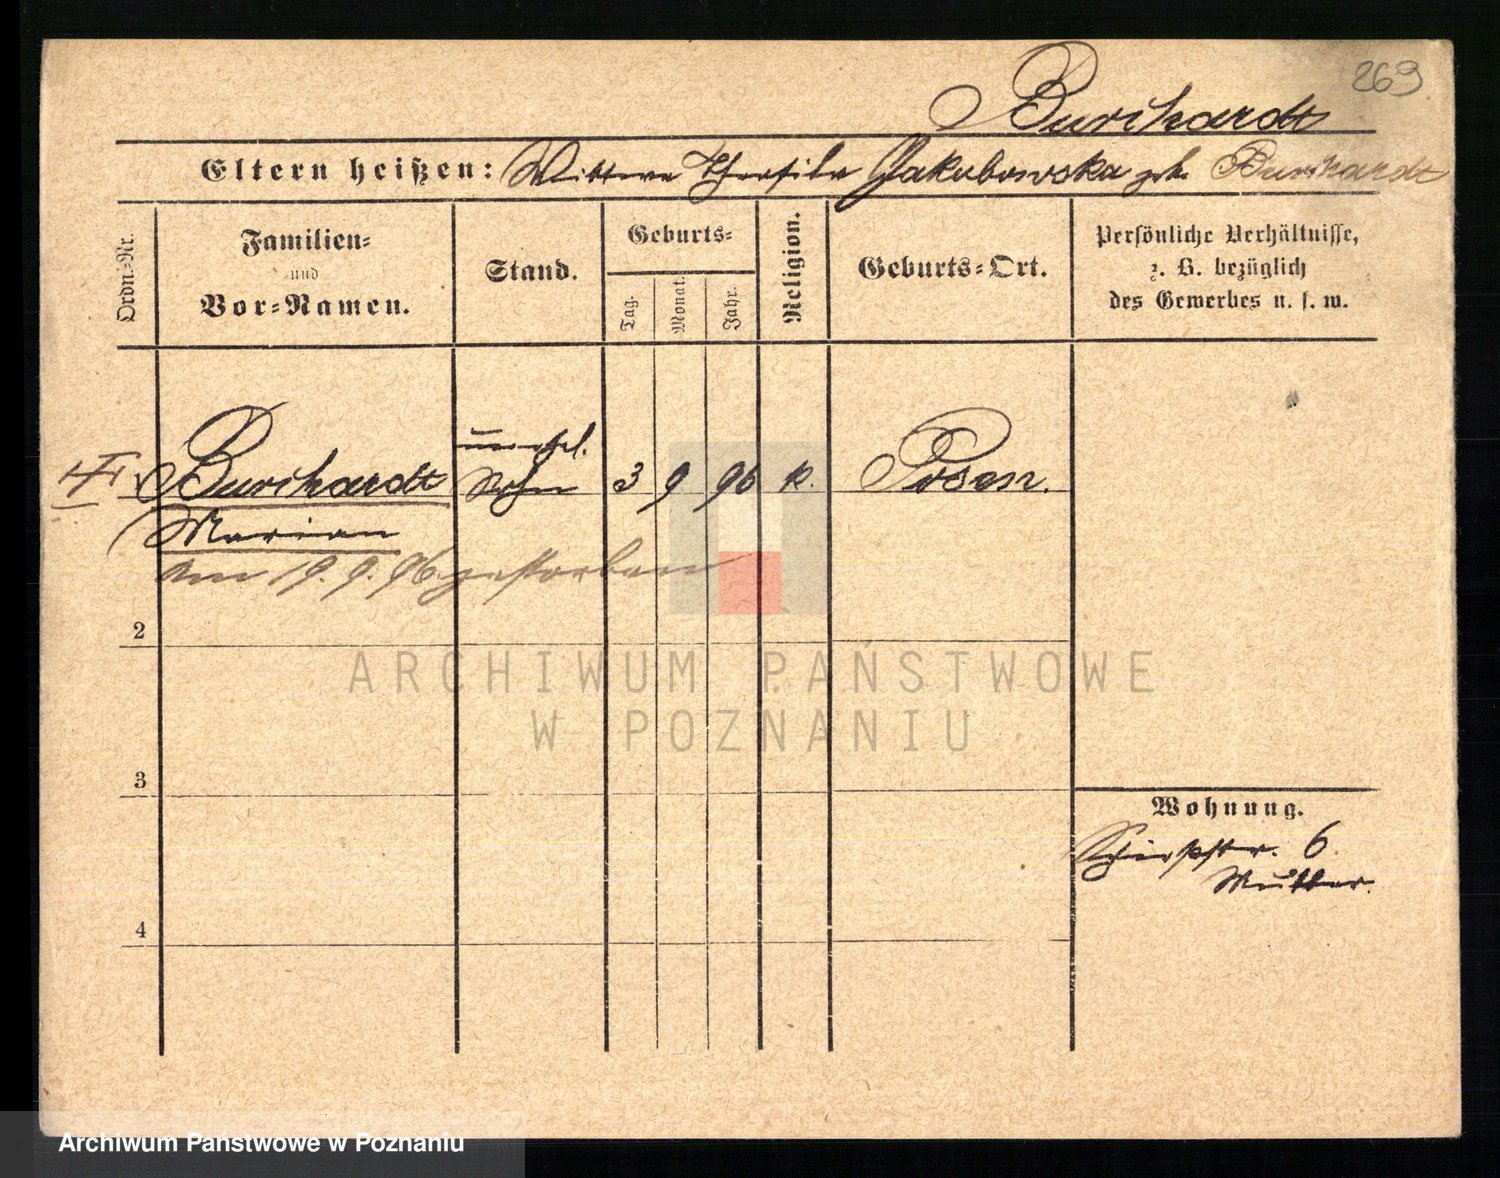 269
Burchardt
Eltern heißen: Wittwe Theofila Jakubowska geb. Burchardt
Ordn.-Nr.
Familien-
und
Vor-Namen.
Stand.
Geburts-
Tag.
Monat.
Jahr.
Religion.
Geburts-Ort.
Persönliche Verhältnisse,
z. B. bezüglich
des Gewerbes u. s. w.
unehel.
1 Burchardt Sohn 3 9 96 k. Posen.
Marian
am 19. 9. 96 gestorben
2
3
4
Wohnung.
6.
Mutter.
ARCHIWUM PAŃSTWOWE
W POZNANIU
Archiwum Państwowe w Poznaniu